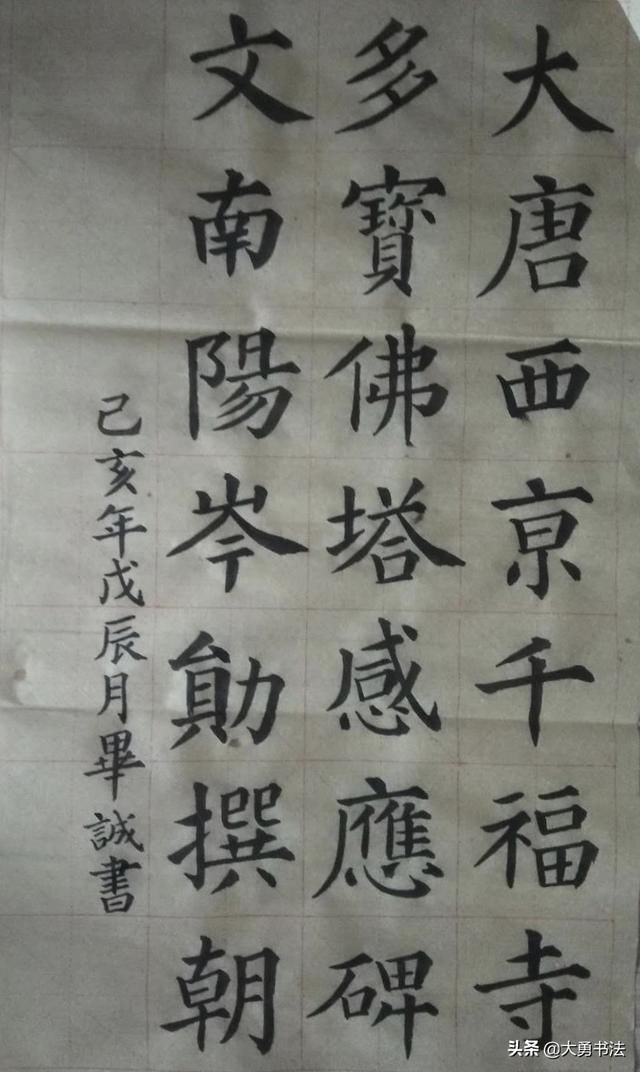 大唐西京千福寺
多寶佛塔感應碑
文南陽岑勛撰朝
己亥年戊辰月畢誠書
头条 @大勇书法